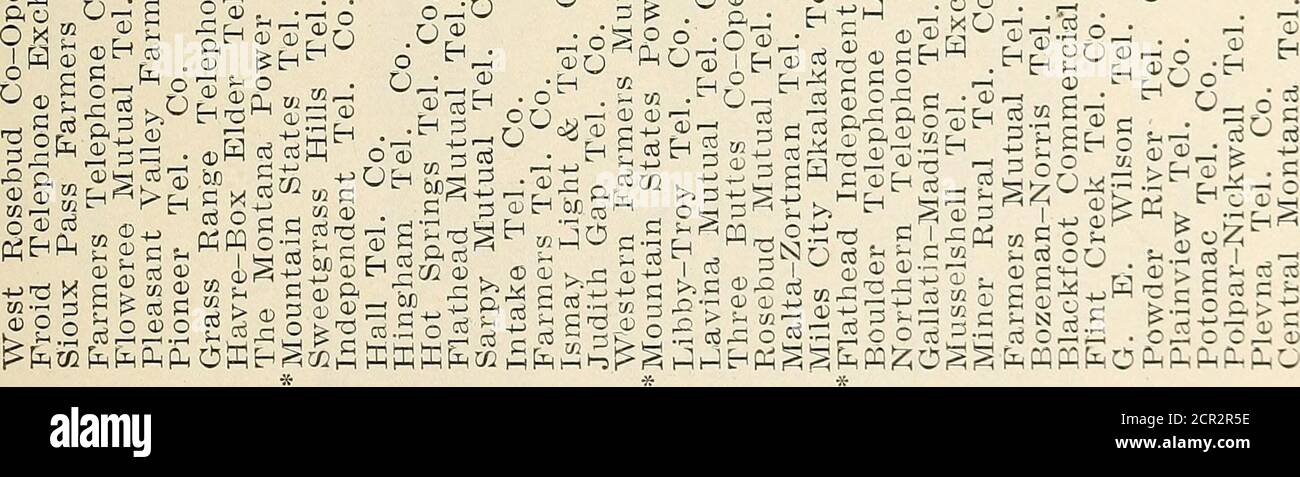 West Rosebud Co-Ope
Froid Telephone Exch
Sioux Pass Farmers
Farmers Telephone C
Floweree Mutual Tel.
Pleasant Valley Farm
Pioneer Tel. Co.
Grass Range Telepho
Havre-Box Elder Tel
The Montana Power
*Mountain States Tel.
Sweetgrass Hills Tel.
Independent Tel. Co.
Hall Tel. Co.
Hingham Tel. Co.
Hot Springs Tel. Co
Flathead Mutual Tel.
Sarpy Mutual Tel. C
Intake Tel. Co.
Farmers Tel. Co.
Ismay Light & Tel. C
Judith Gap Tel. Co.
Western Farmers Mu
*Mountain States Pow
Libby-Troy Tel. Co.
Lavina Mutual Tel. C
Three Buttes Co-Ope
Rosebud Mutual Tel.
Malta-Zortman Tel.
Miles City Ekalaka Te
*Flathead Independent
Boulder Telephone L
Northern Telephone
Gallatin-Madison Tel.
Musselshell Tel. Exc
Miner Rural Tel. Co
Farmers Mutual Tel.
Bozeman-Norris Tel.
Blackfoot Commercial
Flint Creek Tel. Co.
G. E. Wilson Tel.
Powder River Tel. C
Plainview Tel. Co.
Potomac Tel. Co.
Polpar-Nickwall Tel.
Plevna Tel. Co.
Central Montana Tel.
alamy
Image ID: 2CR2R5E
www.alamy.com